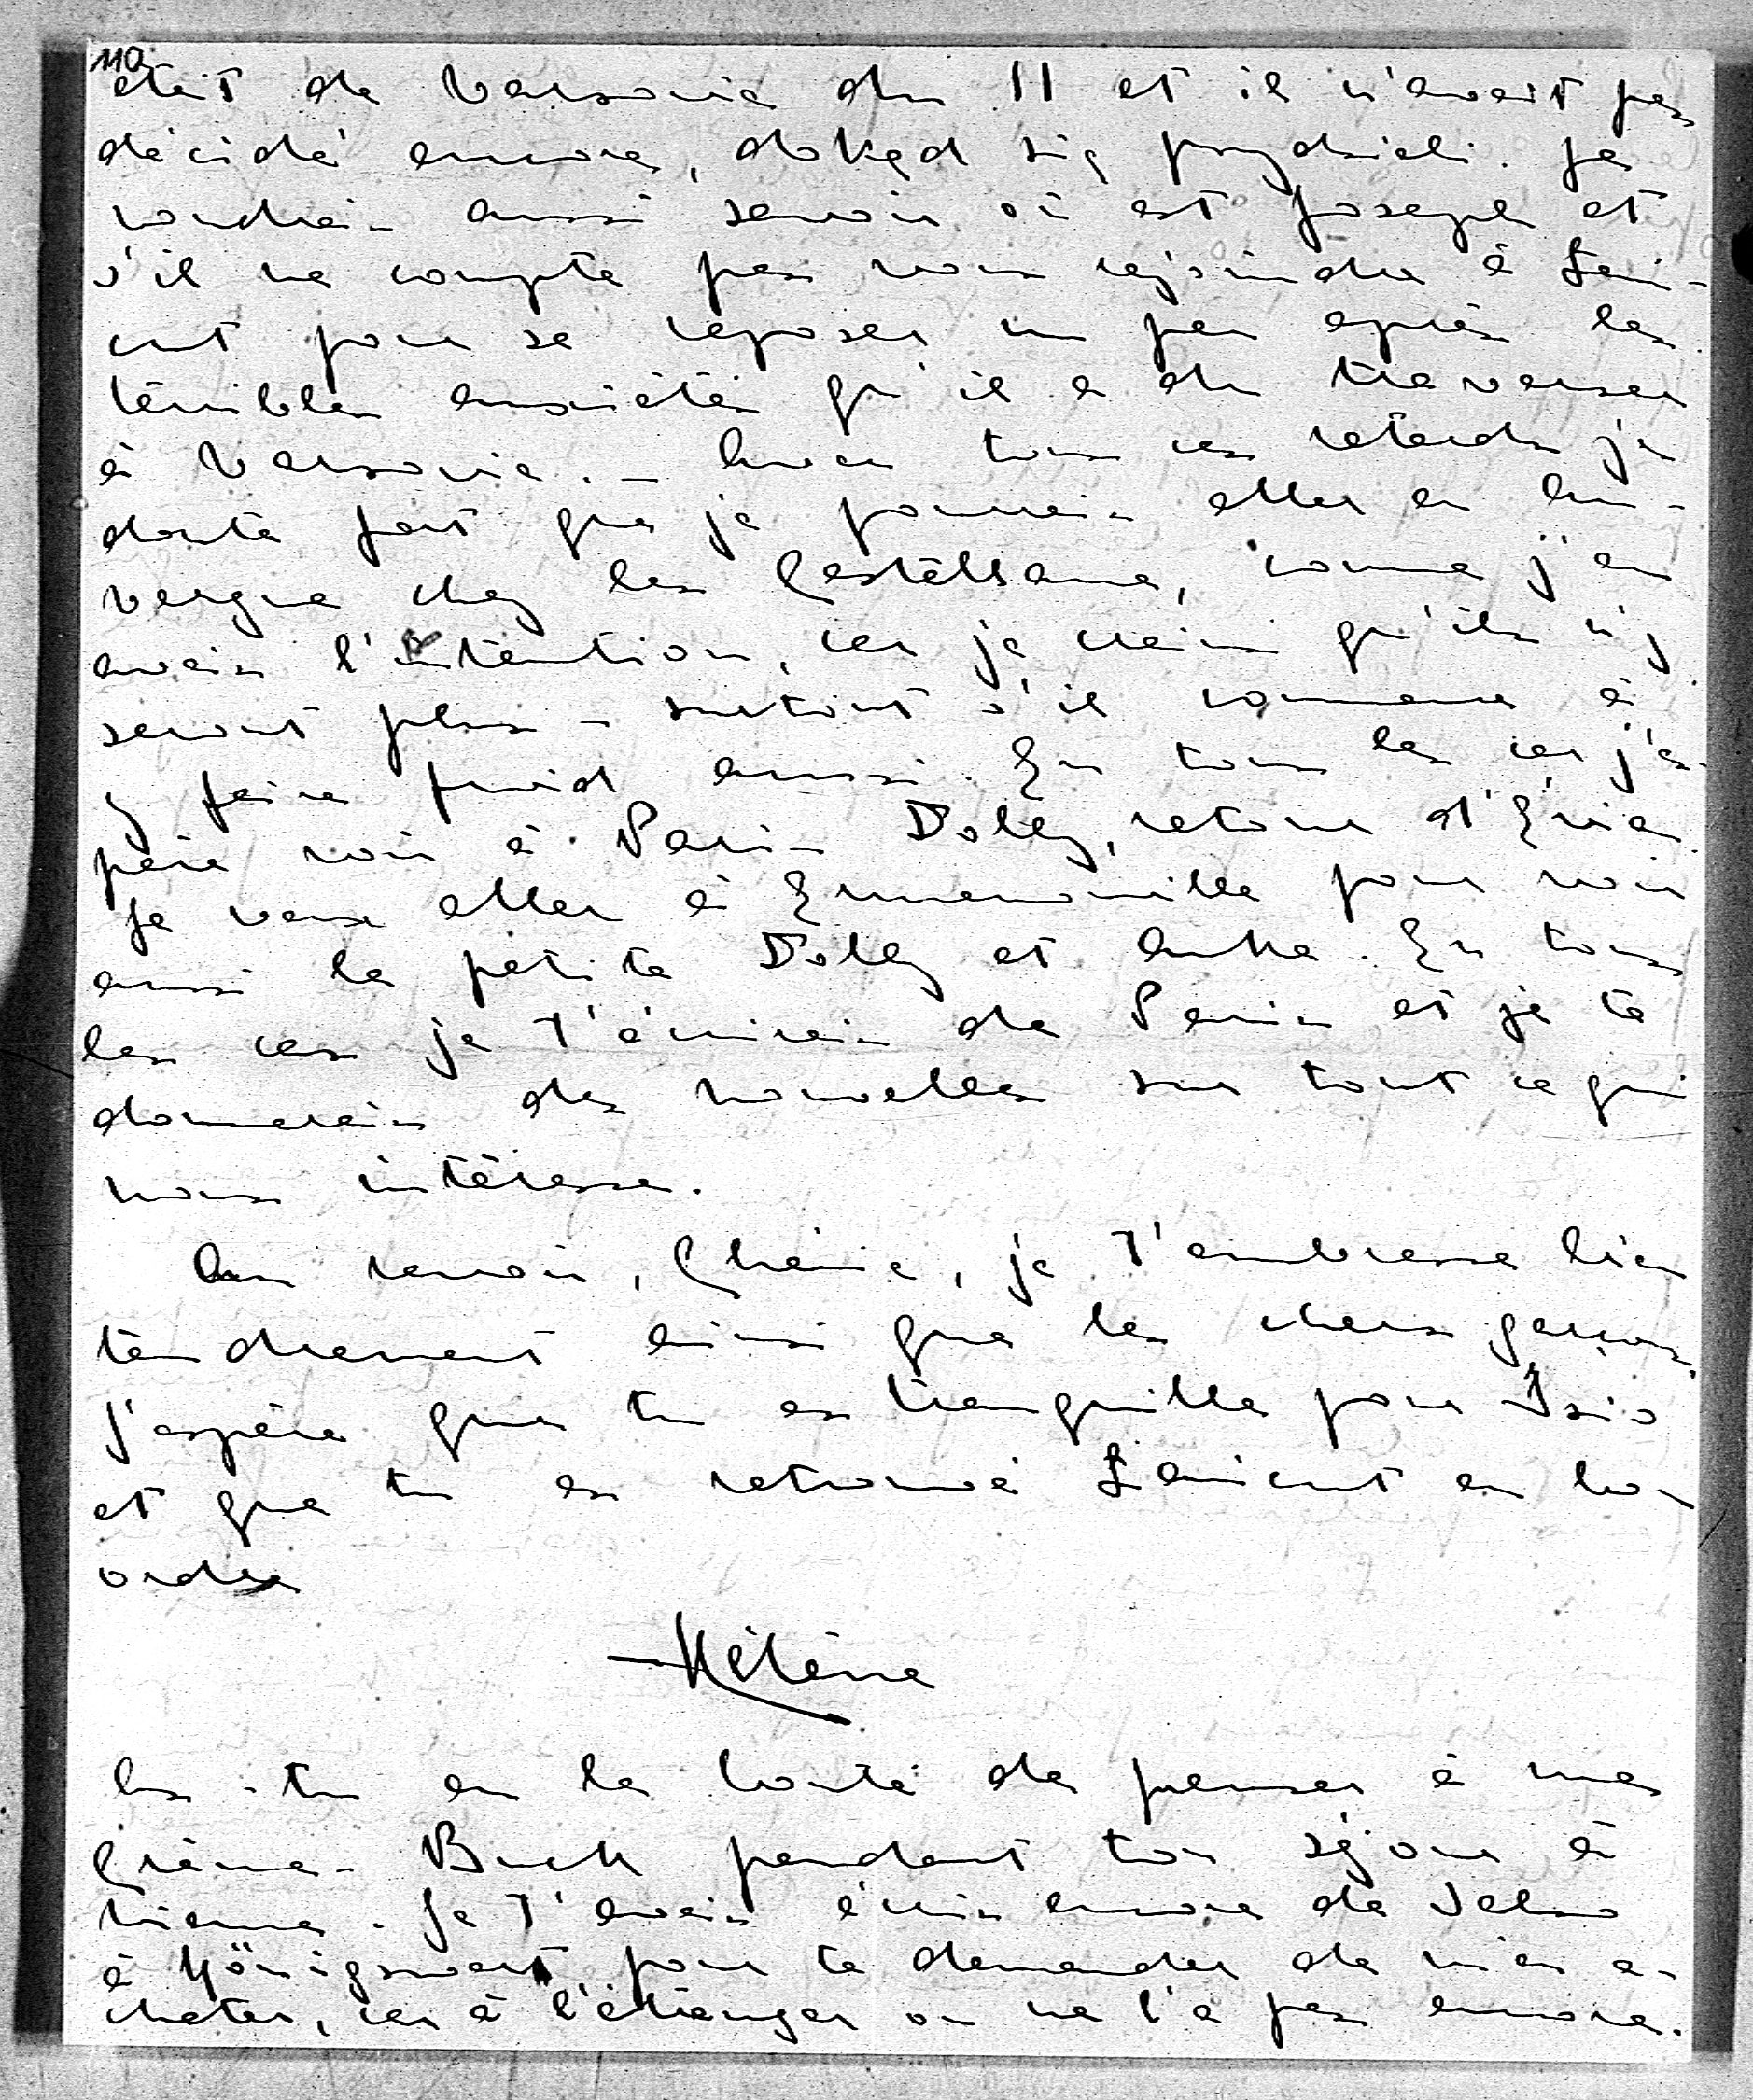 110
était de Varsovie du 11 et il n'avait pas
décidé encore, dokąd się przydzieli. Je
voudrais aussi savoir où est Joseph et
s'il ne compte pas nous rejoindre à Łań-
cut pour se reposer un peu après les
terribles anxiétés qu'il a du traverser
à Varsovie. — Avec tous ces retards je
doute fort que je pourrais aller en Au-
vergne chez les Castellane, comme j'en
avais l'intention, car je crains qu'ils n'y
seront plus – surtout s'il commence à
y faire froid aussi. En tous les cas j'es-
père voir à Paris Dolly, retour d'Evian.
Je veux aller à Ermenonville pour voir
aussi la petite Dolly et Lukka. En tous
les cas je t'écrirais de Paris et je te
donnerais des nouvelles sur tout ce qui
nous intéresse.
Au revoir, Chérie, je t'embrasse bien
tendrement ainsi que les chers garçons.
J'espère que tu es tranquille pour Isio
et que tu as retrouvé Łańcut en bon
ordre
Hélène
As-tu eu la bonté de penser à mes
Crème-Buck pendant ton séjour à
Vienne. Je t'avais écris encore de Salso
à Königswart, pour te demander de m'en a-
cheter, car à l'étranger on ne l'a pas encore.